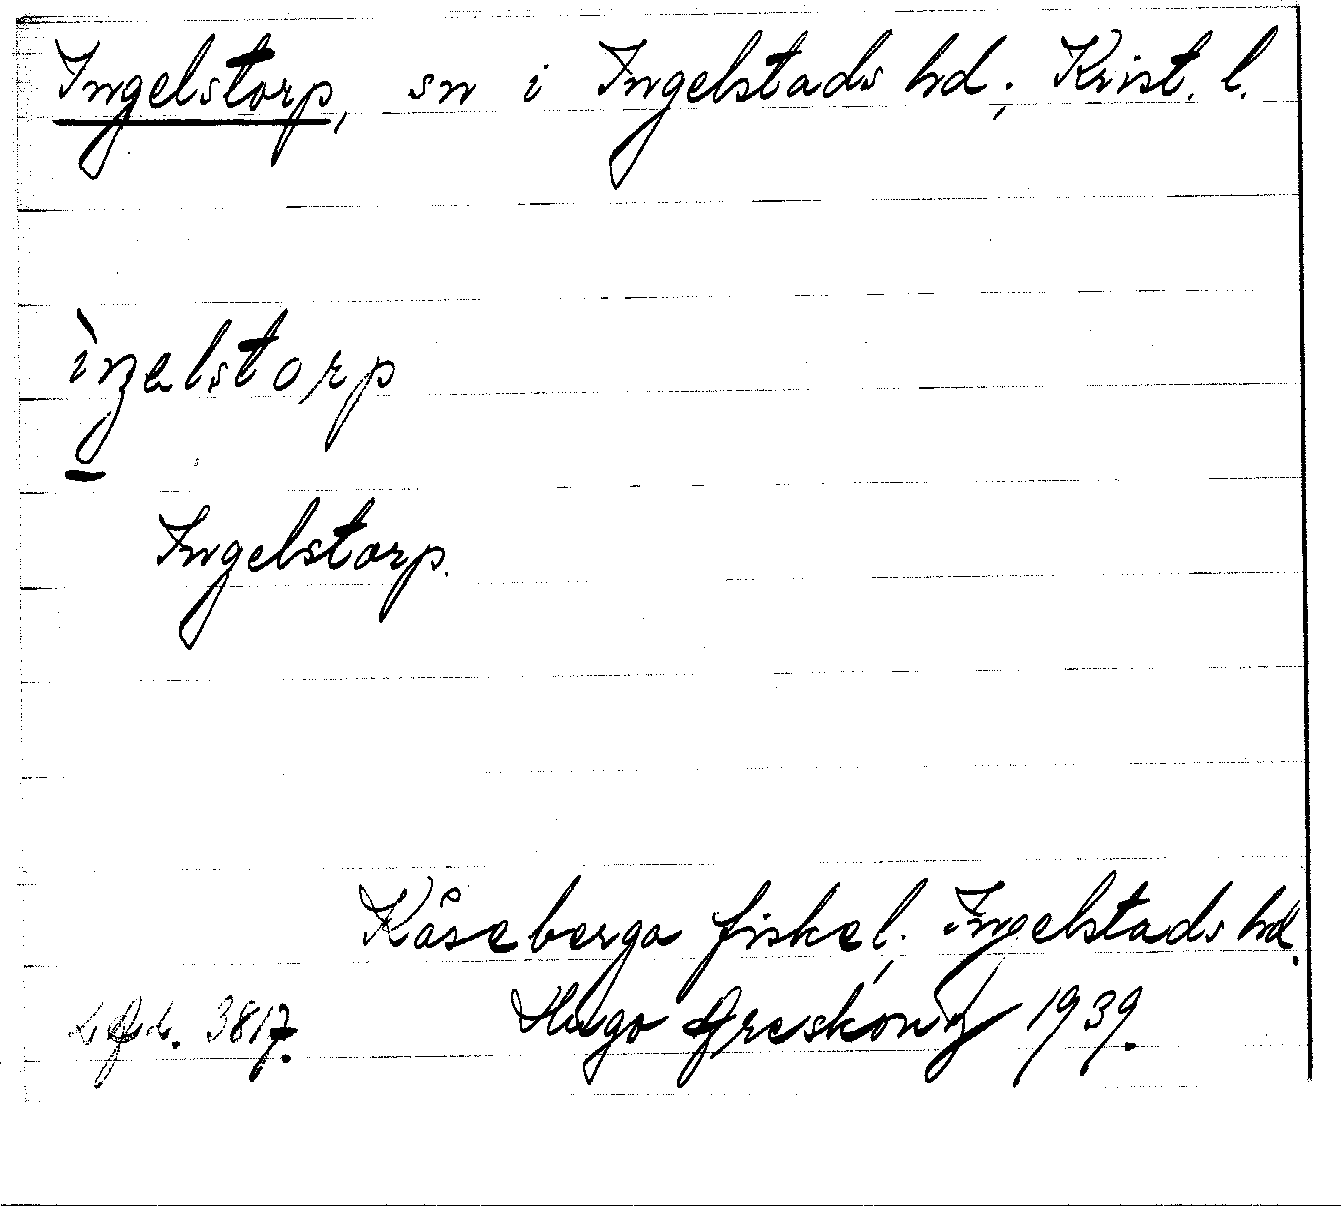 Ingelstorp, sn i Ingelstads hd; Krist. l.
Ingelstorp.
Kåseberga fiskel. Ingelstads hd.
3817. Hugo Areskoug 1939.